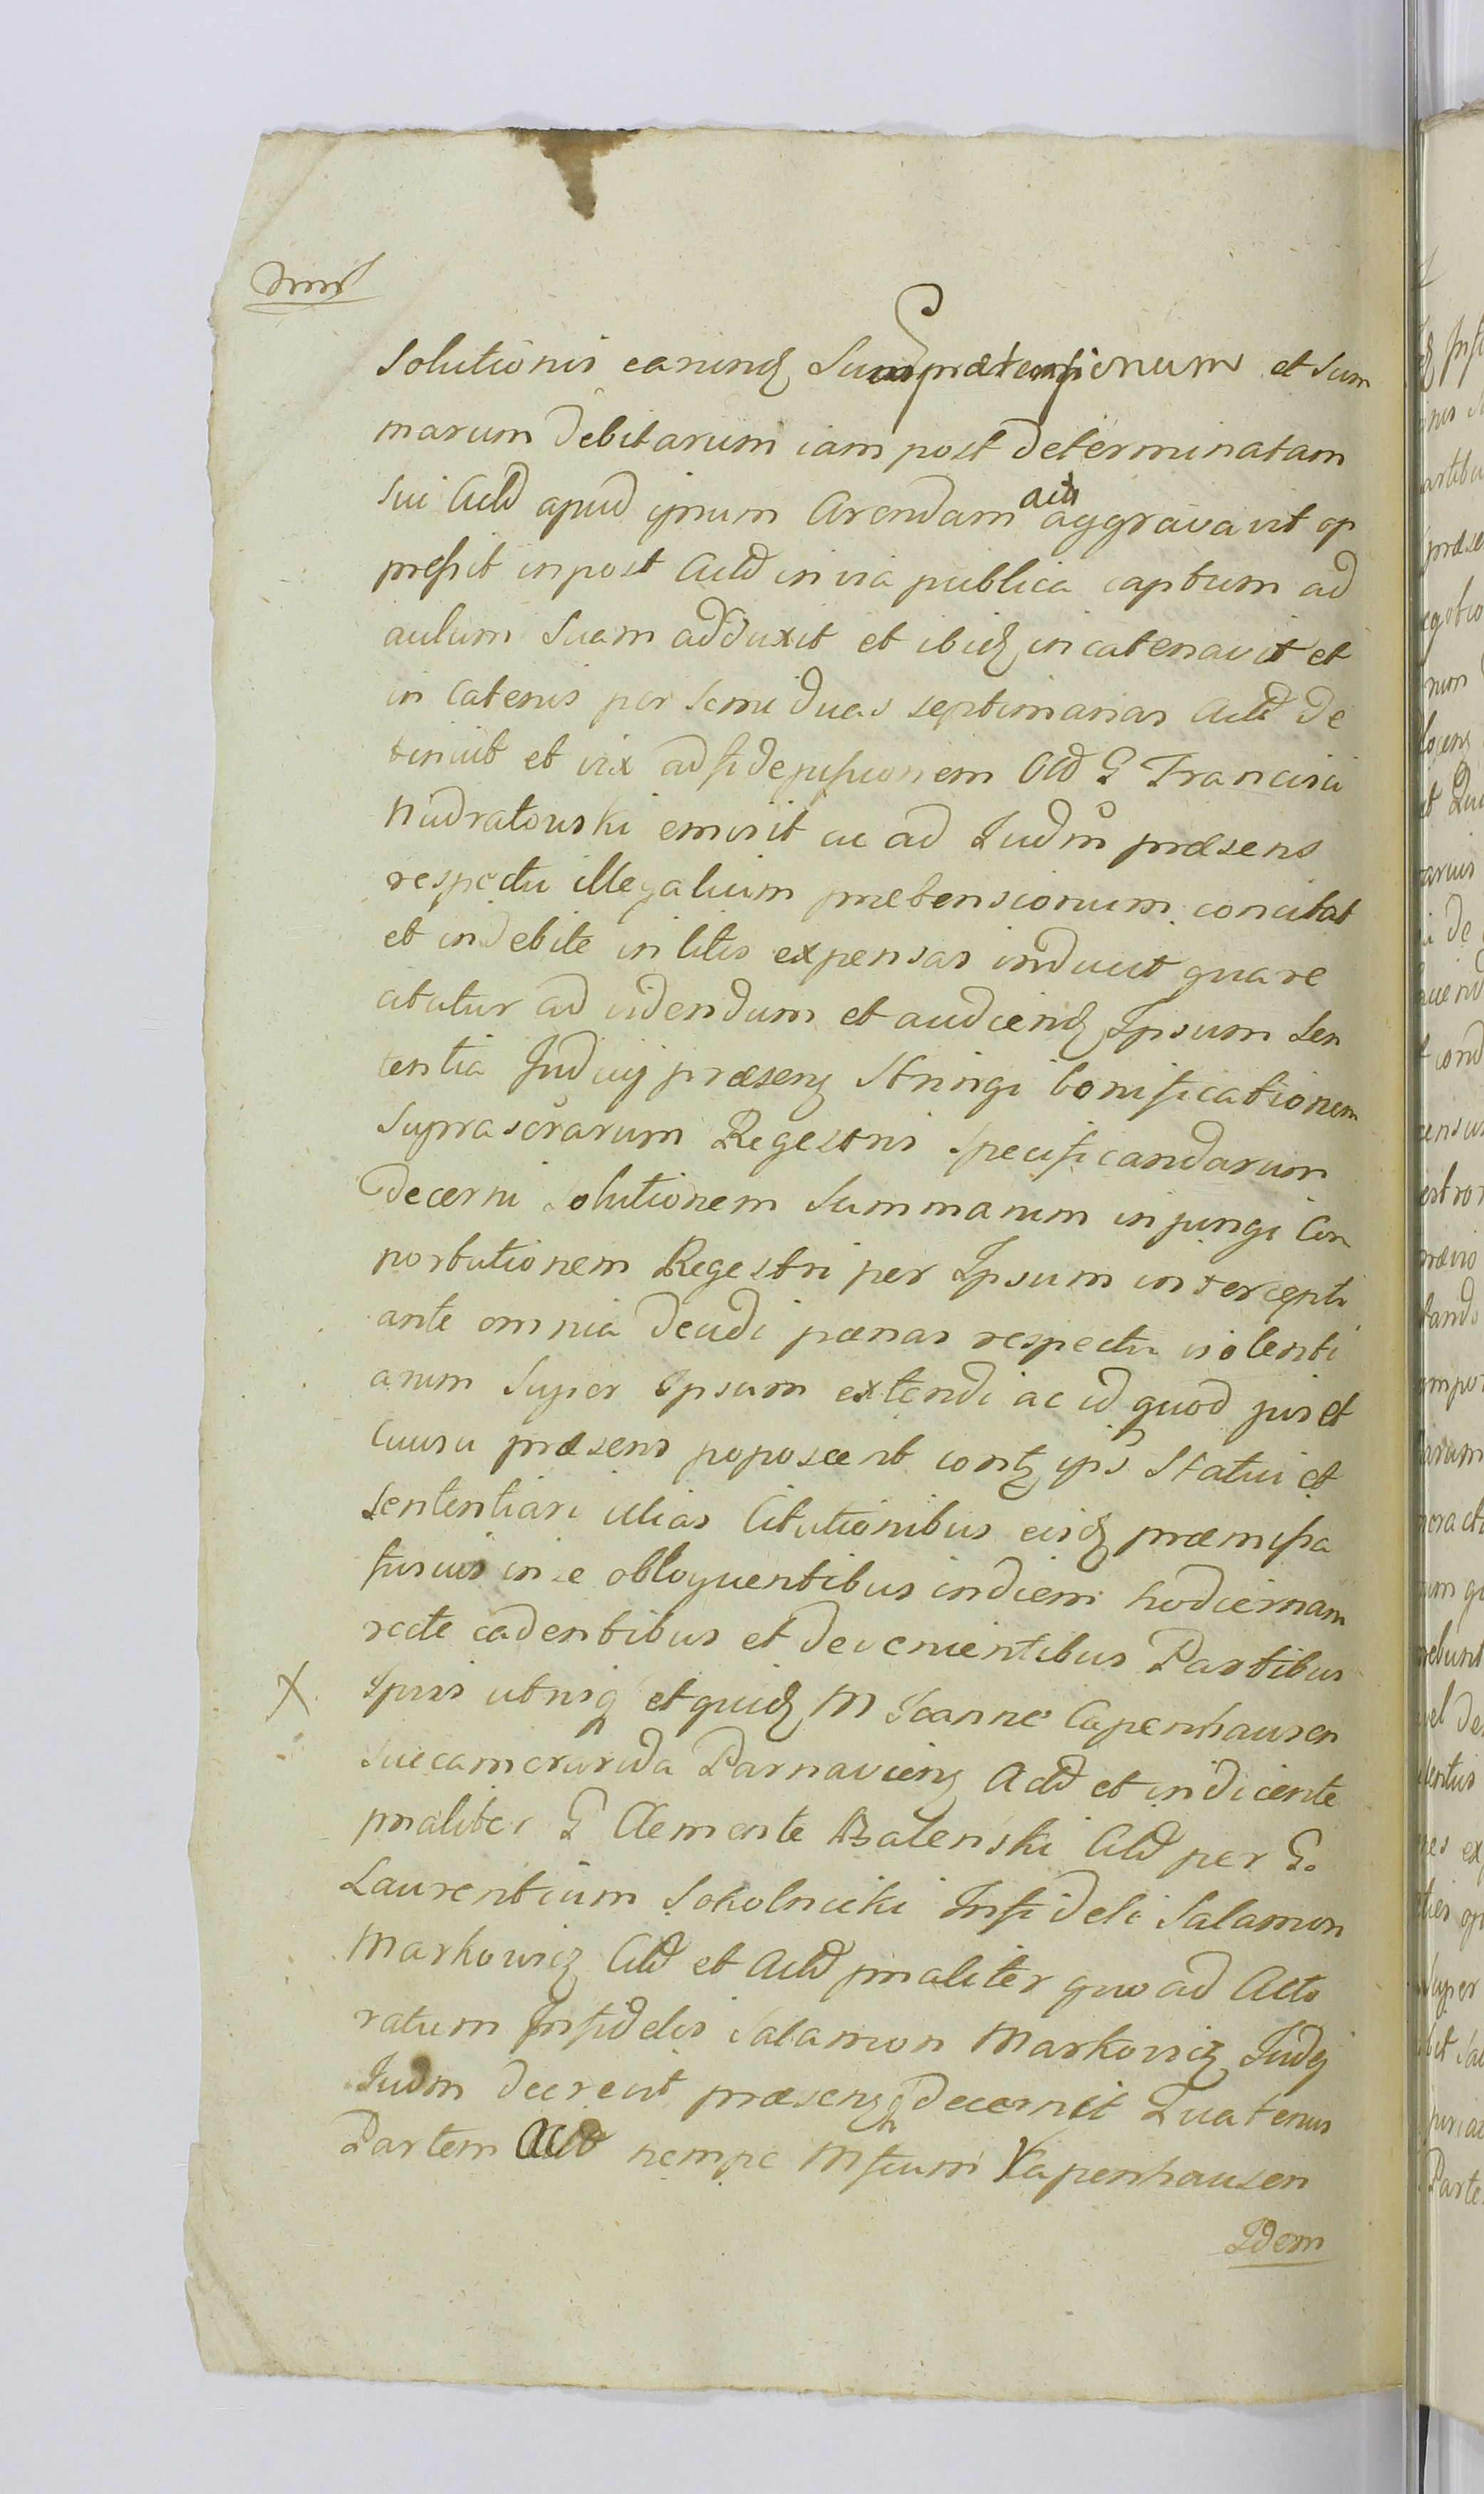 solutionis earund Sum prætensionum et Sum
marum debitarum iam post determinatam
sui Actd apud ipsum Arendam actis aggravavit op
pressit inpost Actd in via publica captum ad
aulum Suam adduxit et ibid incatenavit et
in Catenis per Semi duas septimanas Actd de
tinuit et vix ad fidejussionem Old G Francisci
Nudratowski emisit ac ad Judm præsens
respectu illegalium prætensionum concitat
et indebite in litis expensas inducit quare
citatur ad videndum et audiend Ipsum Sen
tentia Judicij præsens Stringi bonificationem
Suprascrarum Regestris Specificandarum
decerni Solutionem Summarum injungi Con
portationem Regestri per Ipsum intercepti
ante omnia decidi pœnas respectu violenti
arum Super Ipsum extendi ac id quod juris et
Causa præsens poposcerit contr ips Statui et
Sententiari alias Citationibus eisd præmissa
fusius in se obloquentibus in diem hodiernam
recte cadentibus et devenientibus Partibus
X Ipsis utrisq et quid M Joanne Capenhausen
Succamerarida Parnaviens Actd et indicente
pnaliter G Clemente Balenski Citd per G.
Laurentium Sokolnicki Infideli Salamon
Markowicz Citd et Actd pnaliter quoad Acto
ratum Infidelis Salamon Markowicz Judij
Judm decrevit præsensq decernit Quatenus
Partem Actd nempe Mficum Kapenhausen
Idem